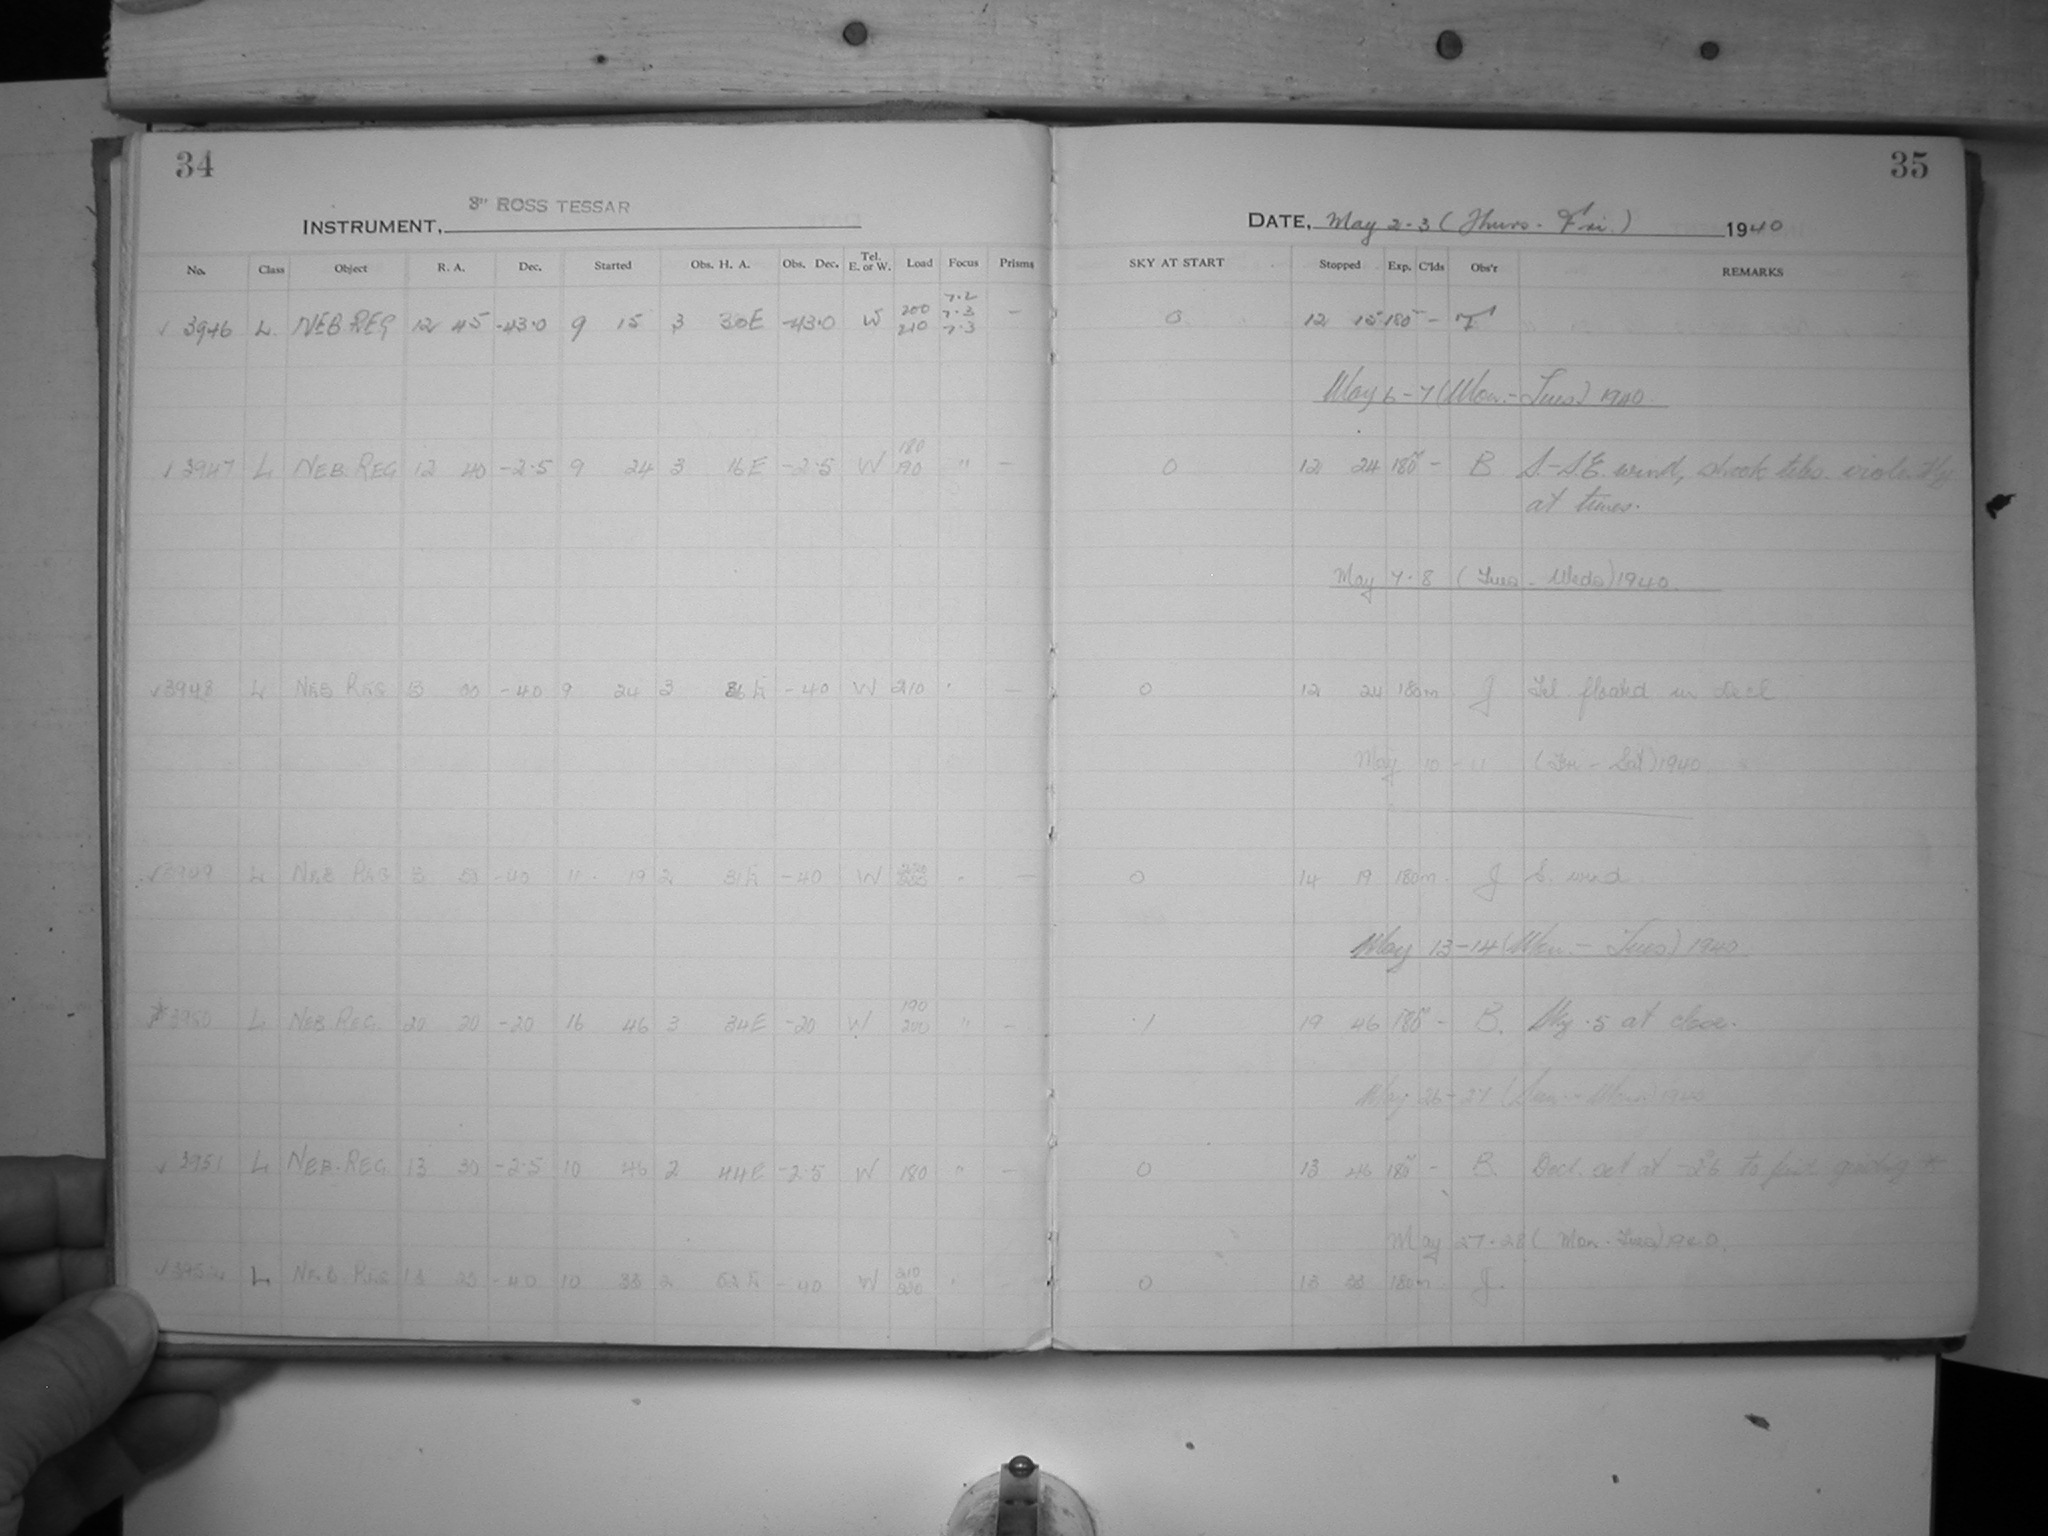 34
3" ROSS TESSAR
INSTRUMENT,
No. Class Object R. A. Dec. Started Obs. H. A. Obs. Dec. Tel. E. or W. Load Focus Prisms
✓ 3946 L NEB REG 12 45 -43.0 9 15 3 30E -43.0 W 200 210 7.2 7.3 7.3 —
✓ 3947 L NEB. REG 12 40 -2.5 9 24 3 16E -2.5 W 180 190 " —
✓ 3948 L NEB REG 13 00 -40 9 24 3 36E -40 W 210 " —
✓ 3949 L NEB REG 13 -40 11 19 2 31E -40 W " —
3950 L NEB REG. 20 30 -20 16 46 3 34E -20 W 190 200 " —
✓ 3951 L NEB. REG 13 30 -2.5 10 46 2 44E -2.5 W 180 " —
✓ 3952 L NEB REG 13 -40 10 33 2 -40 W 210 "
35
DATE, May 2-3 (Thurs. - Fri.) 1940
SKY AT START Stopped Exp. C'lds Obs'r REMARKS
0 12 15 180 - F
May 6-7 (Mon.-Tues) 1940
0 12 24 180 - B S.-SE wind, shook teles. violently
at times.
May 7-8 (Tues - Weds) 1940
0 12 24 180m J Tel. floated in Decl
May 10 - 11 (Fri - Sat) 1940
0 14 19 180m J S. wind
May 13-14 (Mon.- Tues) 1940
1 19 46 180 - B. Sky .5 at close.
May 26-27 (Sun.-Mon.) 1940
0 13 46 180 - B. Decl. set at to find guiding *
May 27-28 (Mon-Tues) 1940.
0 13 33 180m J.